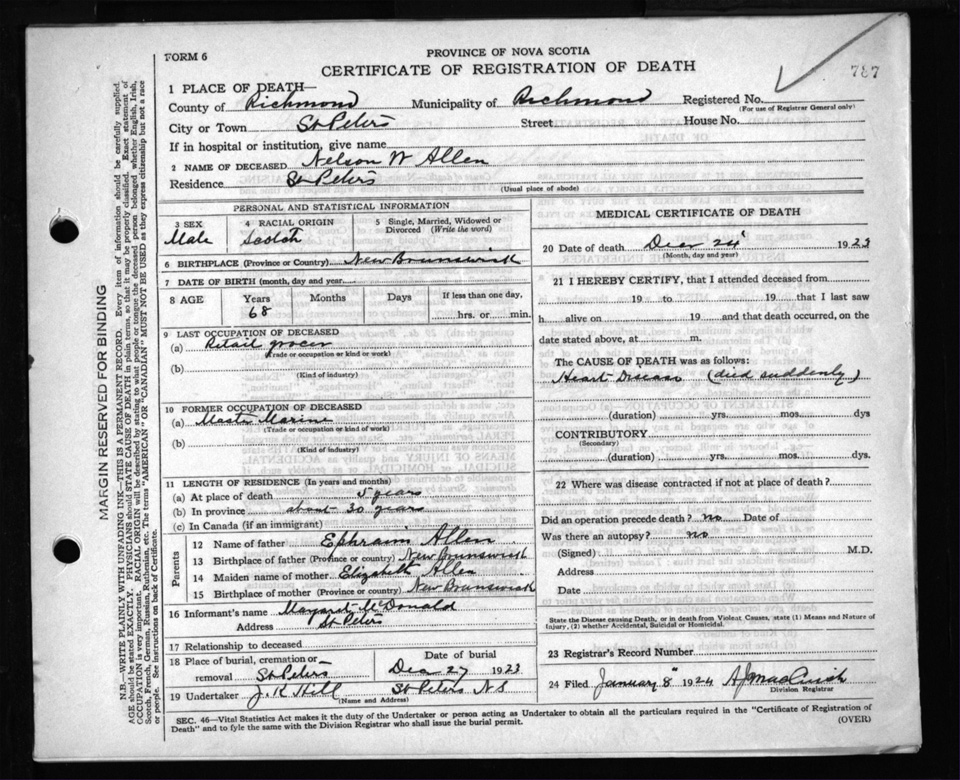 FORM 6
PROVINCE OF NOVA SCOTIA
CERTIFICATE OF REGISTRATION OF DEATH
787
1 PLACE OF DEATH—
County of Richmond Municipality of Richmond Registered No.
(For use of Registrar General only)
City or Town St Peters Street House No.
If in hospital or institution, give name
2 NAME OF DECEASED Nelson W Allen
Residence St Peters
(Usual place of abode)
PERSONAL AND STATISTICAL INFORMATION
3 SEX 4 RACIAL ORIGIN 5 Single, Married, Widowed or Divorced (Write the word)
Male Scotch
6 BIRTHPLACE (Province or Country) New Brunswick
7 DATE OF BIRTH (month, day and year)
8 AGE Years Months Days If less than one day,
68 hrs. or min.
9 LAST OCCUPATION OF DECEASED
(a) Retail grocer
(Trade or occupation or kind or work)
(b)
(Kind of industry)
10 FORMER OCCUPATION OF DECEASED
(a) Master Marine
(Trade or occupation or kind of work)
(b)
(Kind of industry)
11 LENGTH OF RESIDENCE (In years and months)
(a) At place of death 5 years
(b) In province about 30 years
(c) In Canada (if an immigrant)
Parents
12 Name of father Ephraim Allen
13 Birthplace of father (Province or country) New Brunswick
14 Maiden name of mother Elizabeth Allen
15 Birthplace of mother (Province or country) New Brunswick
16 Informant's name Margaret McDonald
Address St Peters
17 Relationship to deceased
18 Place of burial, cremation or removal St Peters Date of burial Dec 27 1923
19 Undertaker J. K Hill St Peters N S
(Name and Address)
MEDICAL CERTIFICATE OF DEATH
20 Date of death Decr 24 1923
(Month, day and year)
21 I HEREBY CERTIFY, that I attended deceased from
19 to 19 that I last saw
h alive on 19 and that death occurred, on
date stated above, at m.
The CAUSE OF DEATH was as follows:
Heart Disease (died suddenly)
(duration) yrs. mos. dys
CONTRIBUTORY
(Secondary)
(duration) yrs. mos. dys.
22 Where was disease contracted if not at place of death?
Did an operation precede death? no Date of
Was there an autopsy? no
(Signed) M.D.
Address
Date
State the Disease causing Death, or in death from Violent Causes, state (1) Means and Nature of Injury, (2) whether Accidental, Suicidal or Homicidal.
23 Registrar's Record Number
24 Filed January 8" 1924
Division Registrar
SEC. 46—Vital Statistics Act makes it the duty of the Undertaker or person acting as Undertaker to obtain all the particulars required in the "Certificate of Registration of
Death" and to fyle the same with the Division Registrar who shall issue the burial permit. (OVER)
MARGIN RESERVED FOR BINDING
N.B.—WRITE PLAINLY WITH UNFADING INK—THIS IS A PERMANENT RECORD. Every item of information should be carefully supplied
AGE should be stated EXACTLY. PHYSICIANS should STATE CAUSE OF DEATH in plain terms, so that it may be properly classified. Exact statement of
OCCUPATION is very important. RACIAL ORIGIN will be described by stating to what people or tongue the deceased person belonged whether English, Irish,
Scotch, French, German, Russian, Ruthenian, etc. The terms "AMERICAN" OR "CANADIAN" MUST NOT BE USED as they express citizenship but not a race
or people. See instructions on back of Certificate.